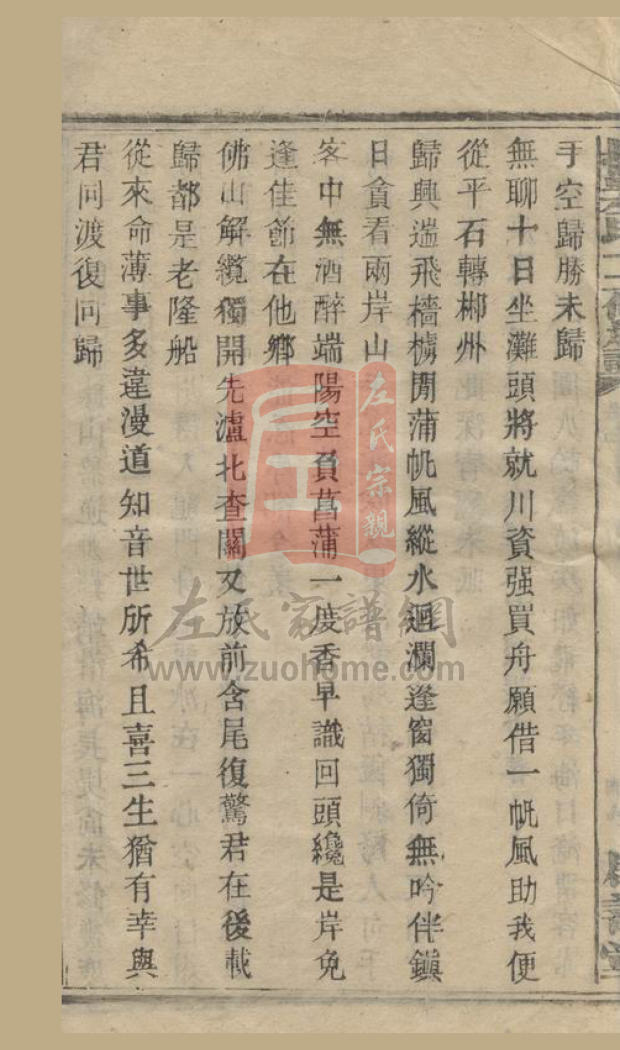 手空歸勝未歸
無聊十日坐灘頭將就川資强買舟願借一帆風助我便
從平石轉郴州
歸興遄飛檣櫓閒蒲帆風縱水迴瀾逢窗獨倚無吟伴鎮
日貪看兩岸山
客中無酒醉端陽空負菖蒲一度香早識回頭纔是岸免
逢佳節在他鄉
佛山解纜獨開先瀘北查關又放前含尾復驚君在後載
歸都是老隆船
從來命薄事多違漫道知音世所希且喜三生猶有幸與
君同渡復同歸
左氏宗親
左氏家譜網
www.zuohome.com